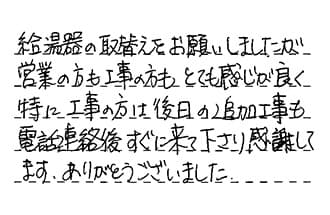 給湯器の取替えをお願いしましたが
営業の方も工事の方も、とても感じが良く
特に工事の方は後日の追加工事も
電話連絡後すぐに来て下さり、感謝して
ます。ありがとうございました。